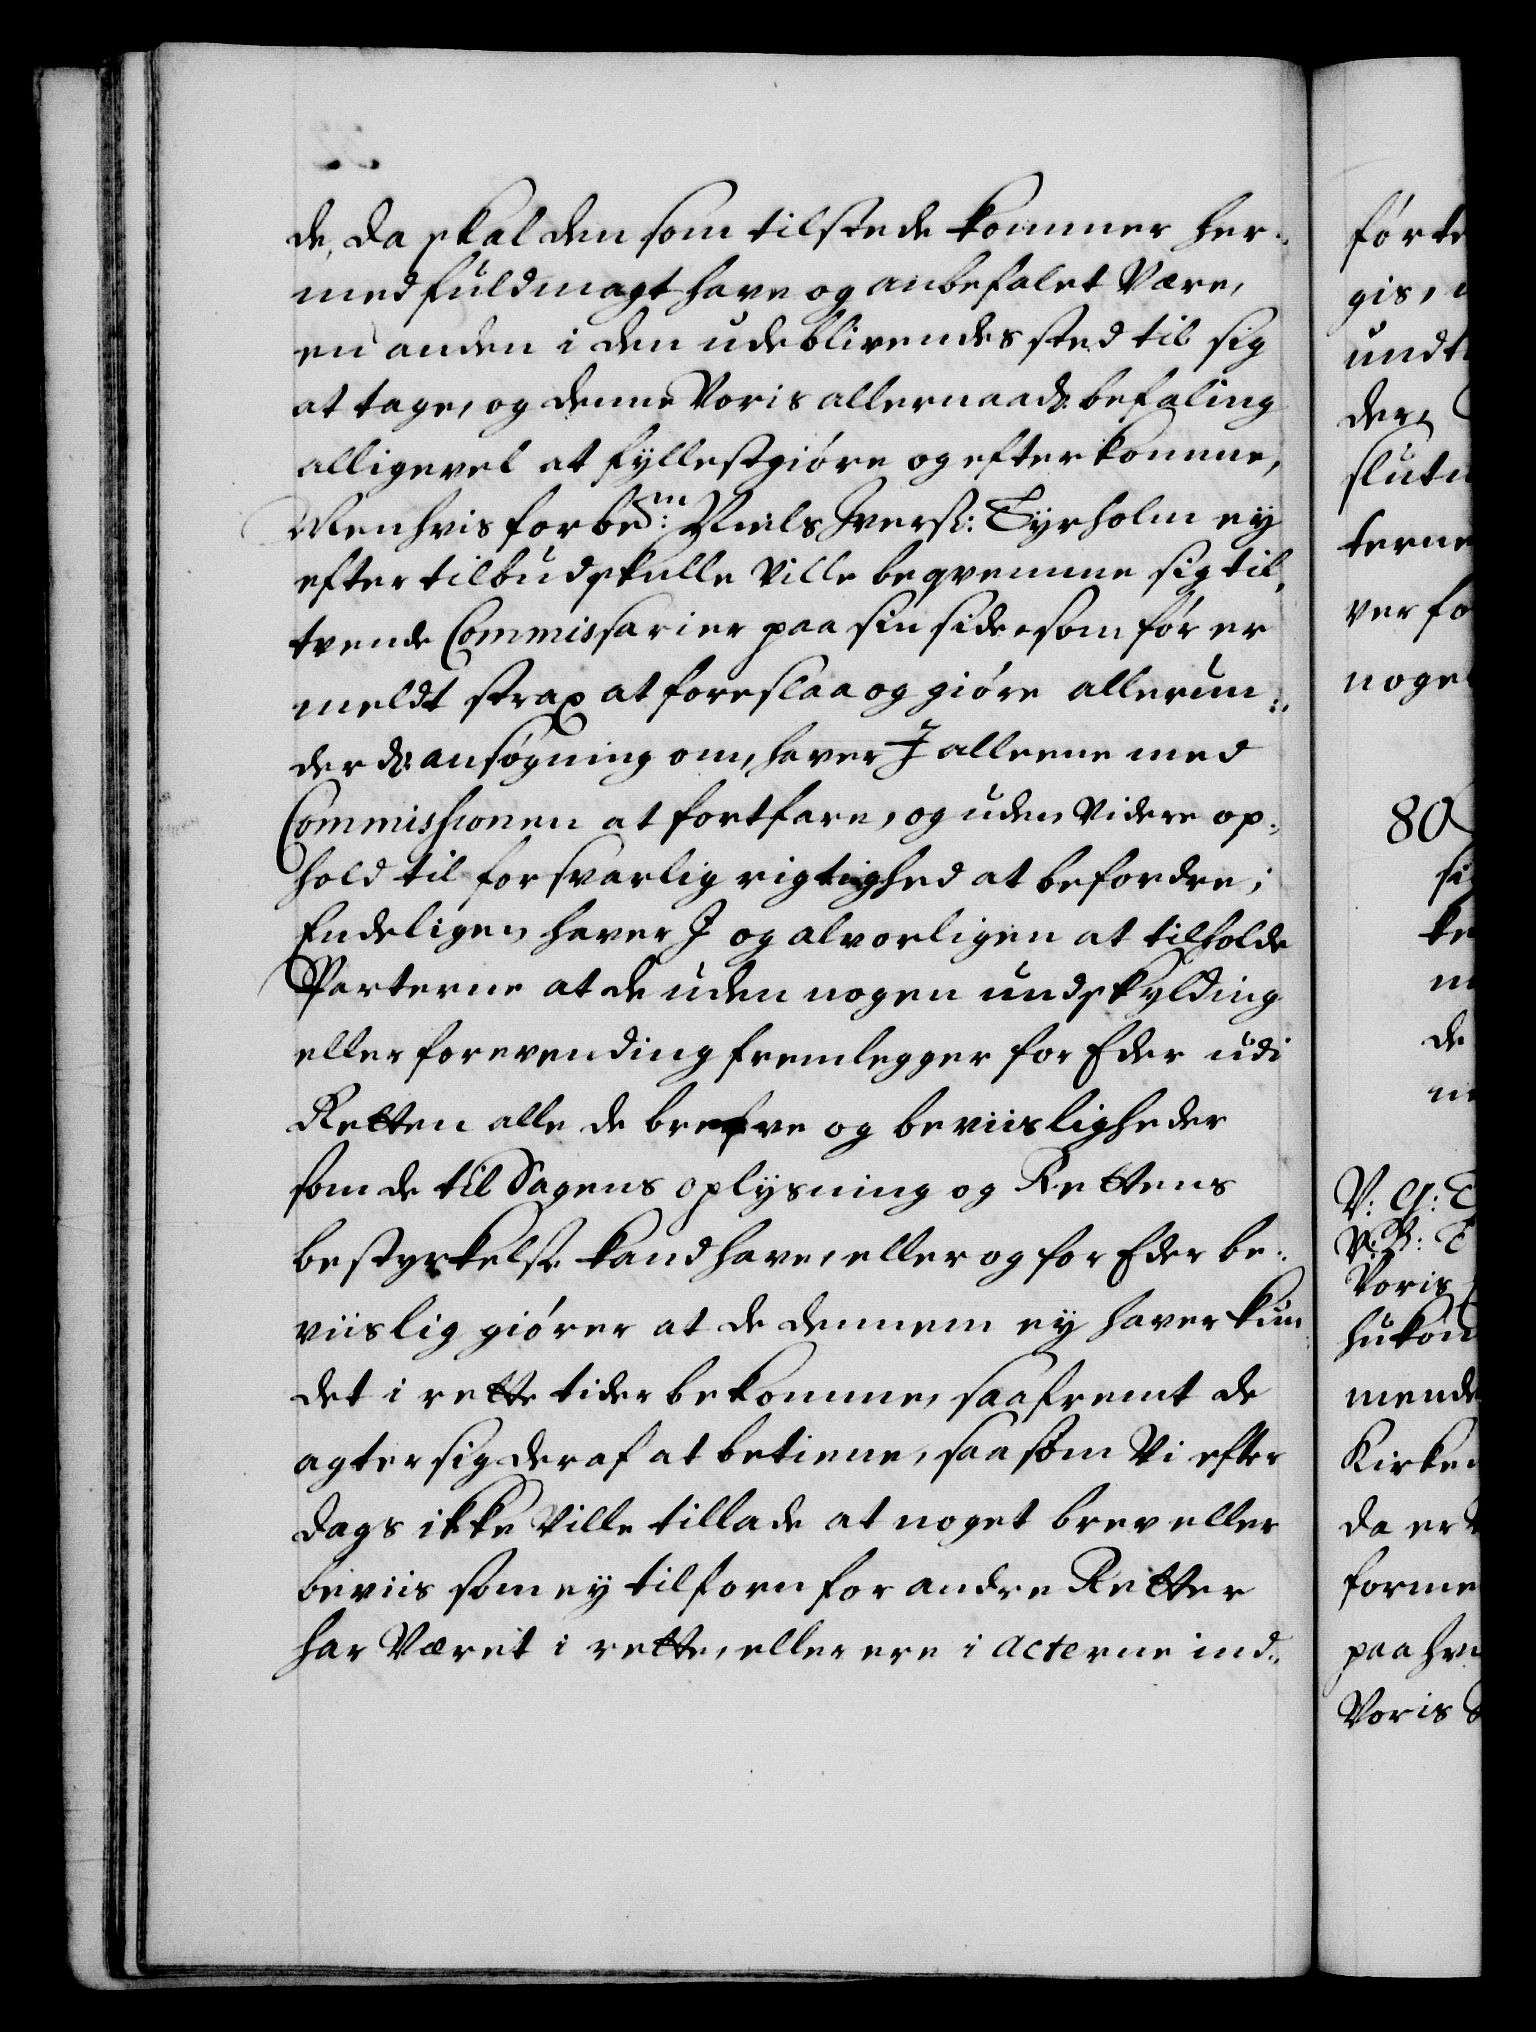 de, da skal den som tilstede kommer her-
med fuldmagt have og anbefalet Være,
en anden i den udeblivendes sted til sig
at tage, og denne Voris allernaads: befaling
alligevel at fyllestgiöre og efterkomme,
Men hvis forbem:te Niels Iverss: Tyrholm ey
efter tilbud skulle Ville beqvemme sig til,
tvende Commissarier paa sin side som för er
meldt strax at foreslaa og giöre allerun-
derds: ansögning om, haver I alleene med
Commissionen at fortfare, og uden Videre op-
hold til forsvarlig rigtighed at befordre;
Endeligen haver I og alvorligen at tilholde
Parterne at de uden nogen undskylding
eller forevending fremlegger for Eder udi
Retten alle de brefve og beviisligheder
som de til Sagens oplysning og Rettens
bestyrkelse kand have, eller og for Eder be-
viislig giörer at de dennem ey haver kun-
det i rette tider bekomme, saafremt de
agter sig deraf at betiene, saasom Vi efter
dags ikke Ville tillade at noget brev eller
beviis som ey tilforn for andre Retter
har Været i rette, eller ere i Acterne ind-
förte
gis,
undt
der
slut
terne
ver fo
noget
80
si
ke
de
V: G: T
Voris
hukom
mende
Kirken
da er
forme
paa
Voris